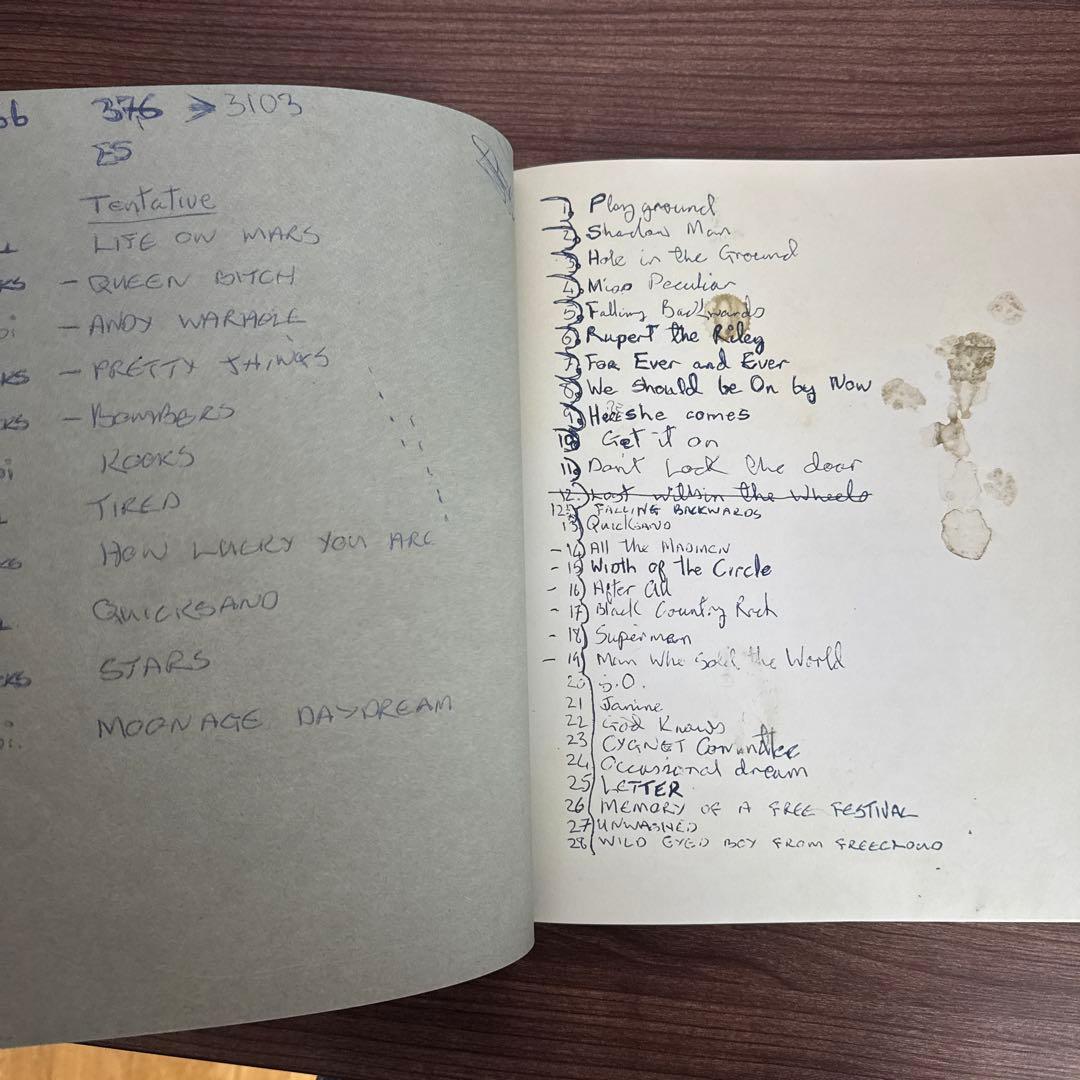 376 > 3103
Tentative
LIFE ON MARS
- QUEEN BITCH
- ANDY WARHOLE
- PRETTY THINGS
- BOMBERS
KOOKS
TIRED
HOW LUCKY YOU ARE
QUICKSAND
STARS
MOONAGE DAYDREAM
1 Playground
2 Shadow Man
3 Hole in the Ground
4 Miss Peculiar
5 Falling Backwards
6 Rupert the Riley
7 For Ever and Ever
8 We should be On by Now
9 Here she comes
10 Get it on
11 Don't Lock the door
12. Lost within the Wheels
12 FALLING BACKWARDS
13 QUICKSAND
- 14 All the Madmen
- 15 Width of the Circle
- 16 After All
- 17 Black Country Rock
- 18 Superman
- 19 Man Who Sold the World
20 S.O.
21 Janine
22 God Knows
23 CYGNET Committee
24 Occassional dream
25 LETTER
26 MEMORY OF A FREE FESTIVAL
27 UNWASHED
28 WILD EYED BOY FROM FREECLOUD